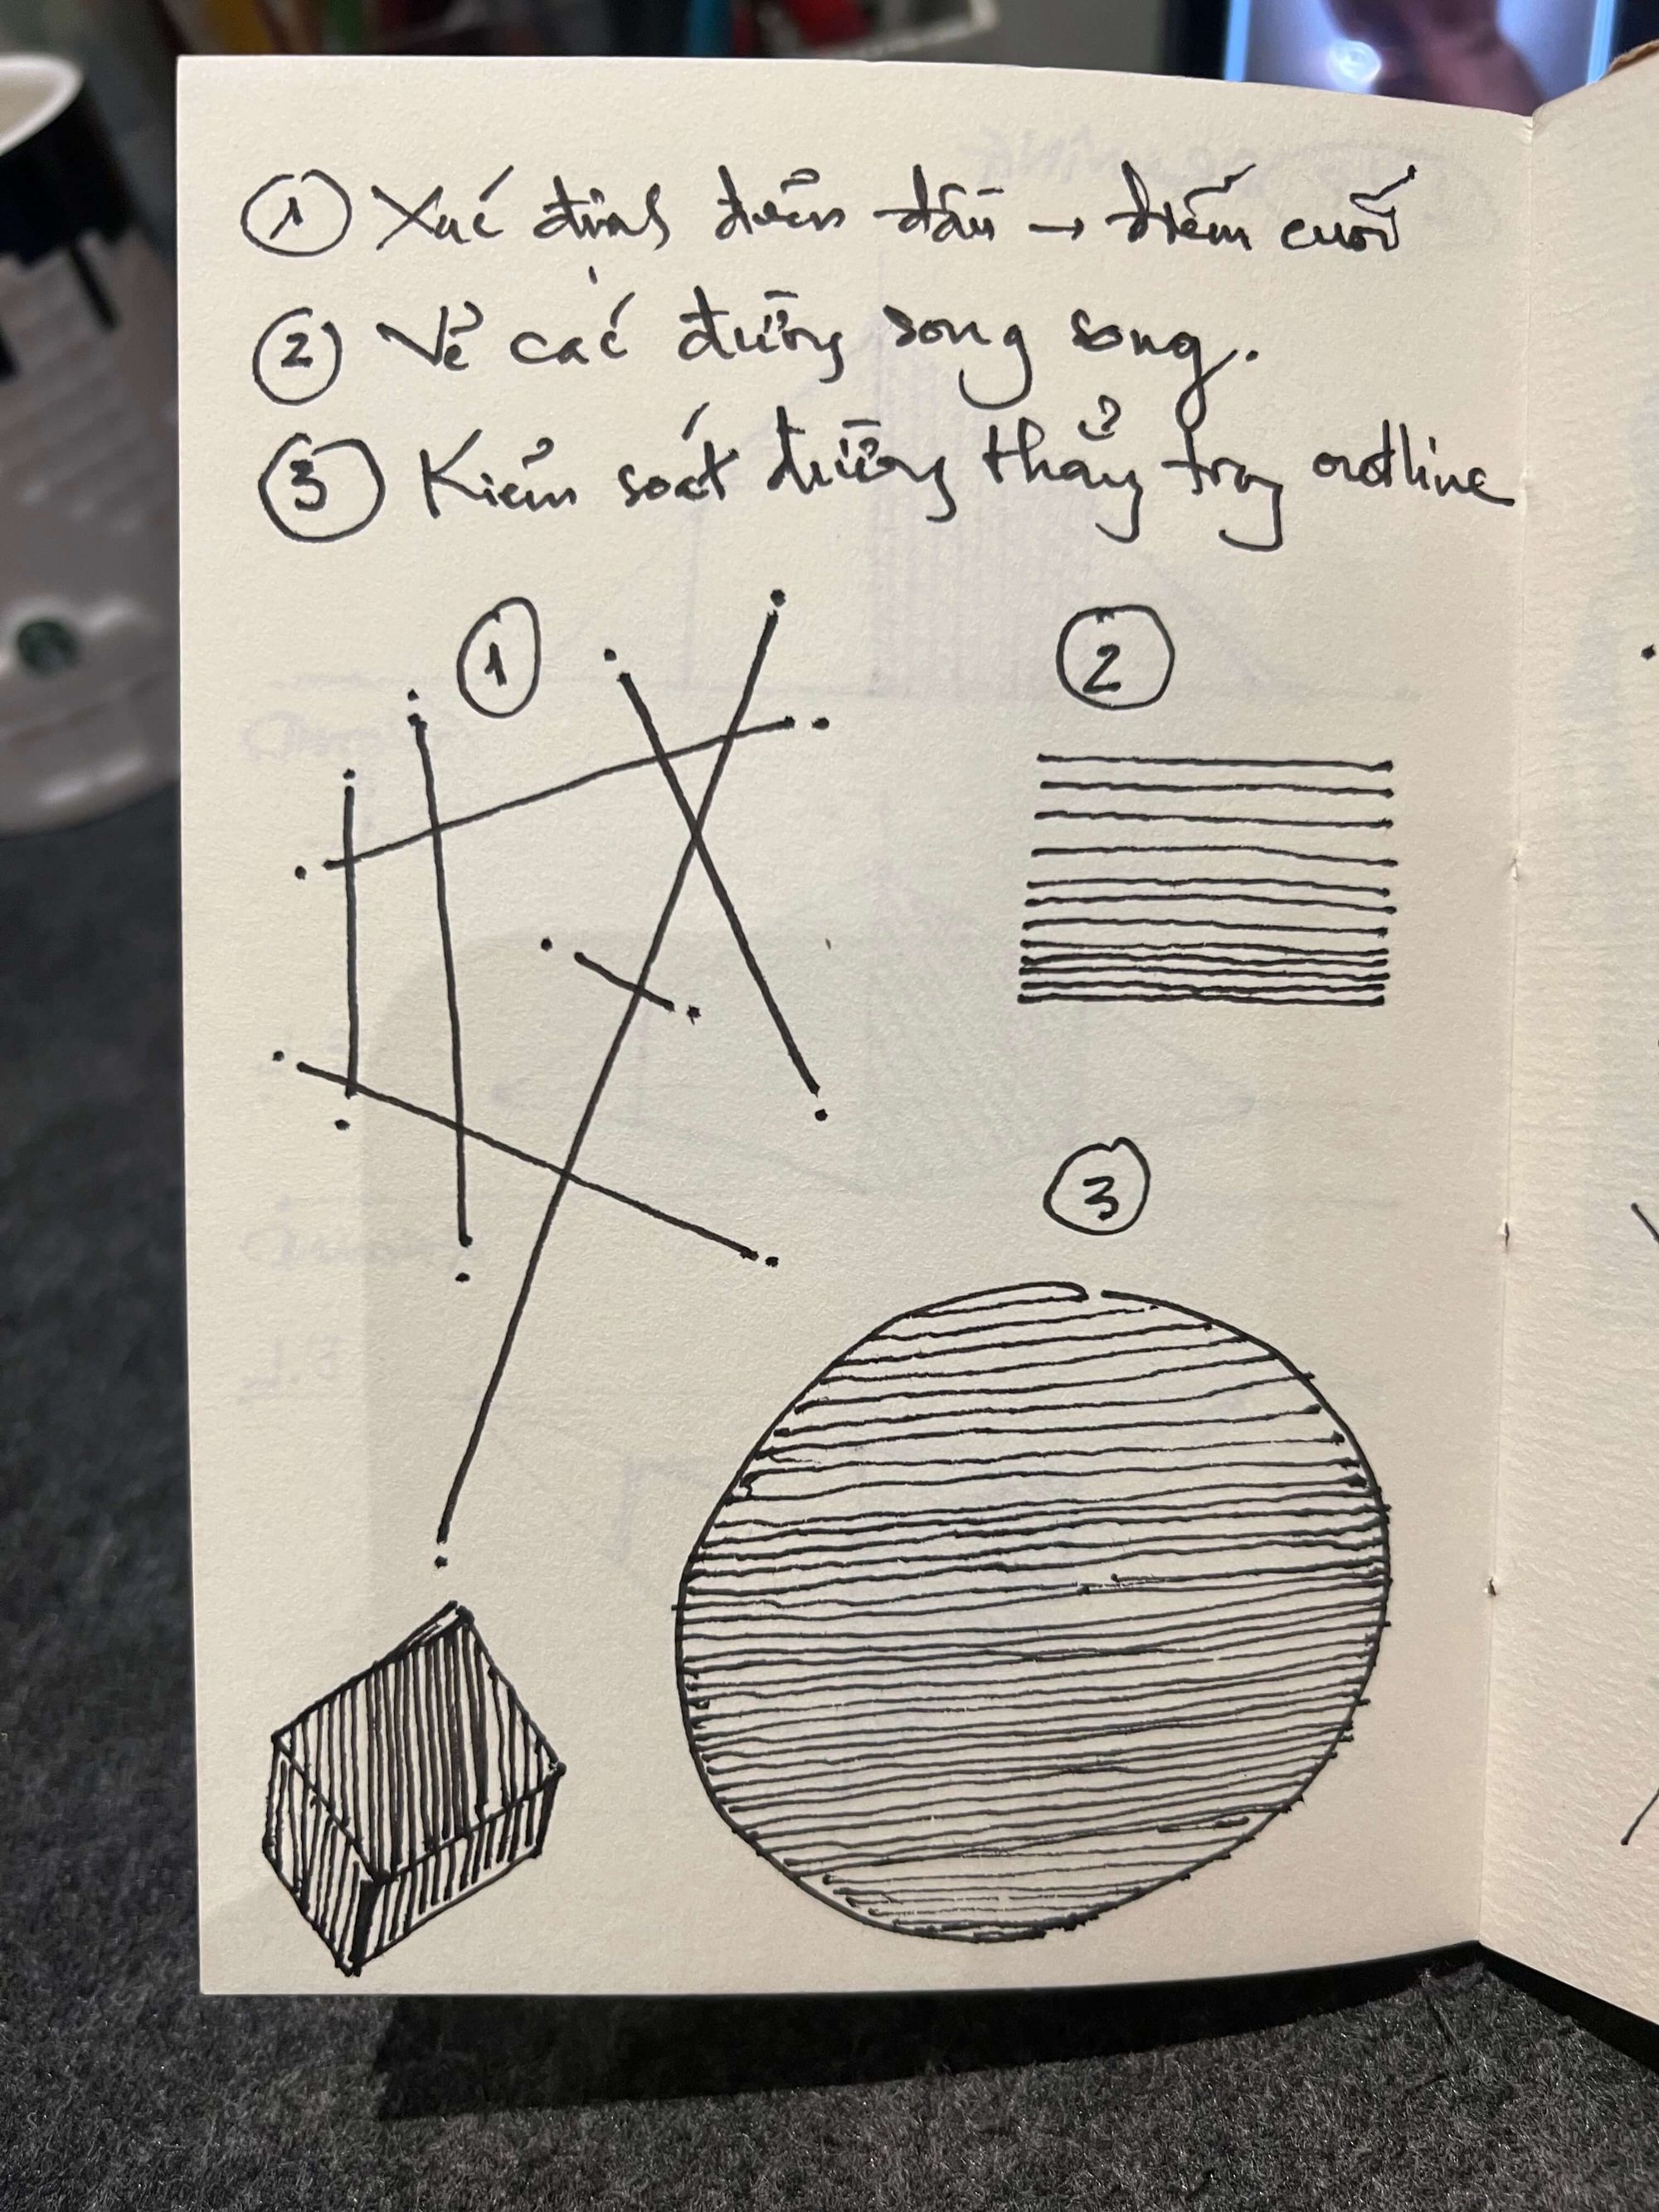 1 Xác định điểm đầu → điểm cuối
2 Vẽ các đường song song.
3 Kiểm soát đường thẳng trong outline
1
2
3